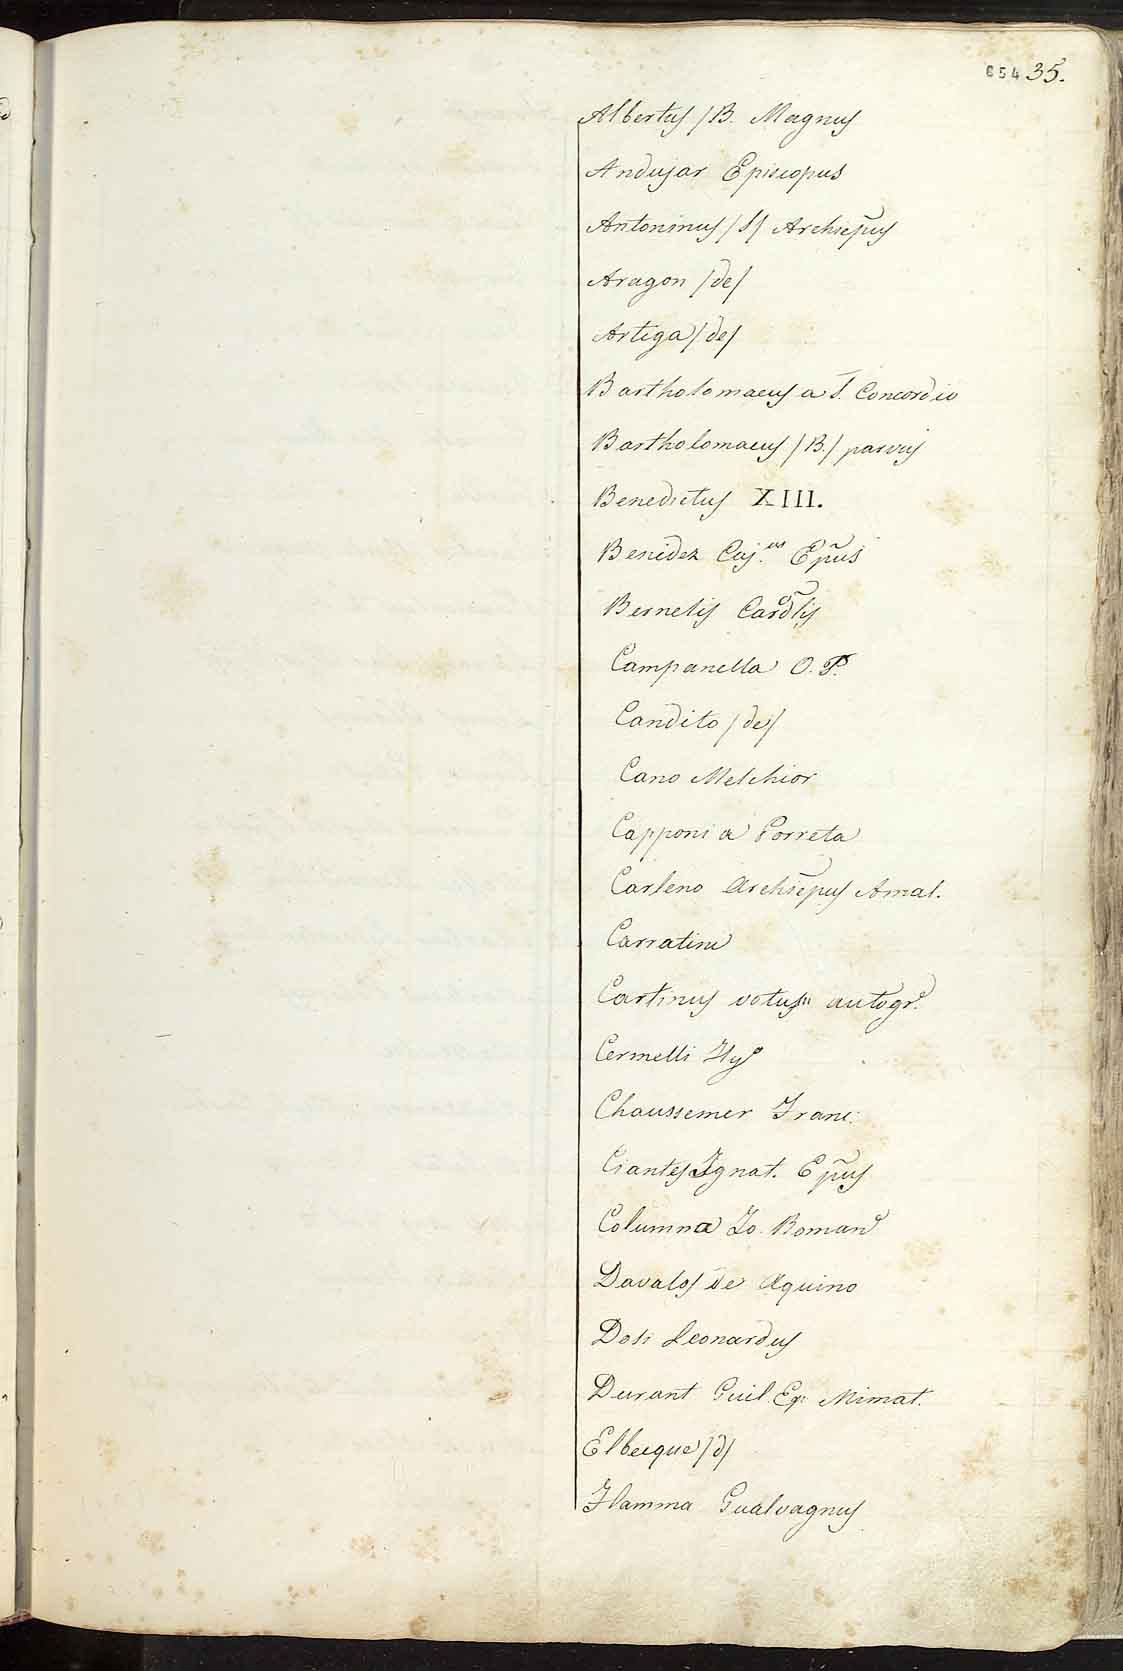 654 35.
Albertus /B. Magnus
Andujar Episcopus
Antoninus /S/ Archiepũs
Aragon /de/
Artiga /de/
Bartholomaeus a S. Concordio
Bartholomaeus /B./ parvus
Benedictus XIII.
Benidez Caj.us Epũs
Bernelis Cardlis
Campanella O. P.
Candito /de/
Cano Melchior
Capponi a Porreta
Carleno Archiepũs Amal.
Carratini
Cartinus votus autogr.
Cermelli Hy
Chaussemer Franc.
Ciantes Ignat. Epũs
Columna Jo. Roman
Davalos de Aquino
Doti Leonardus
Durant Guil. Ep: Mimat.
Elbecque /d/
Flamma Gualvagnus